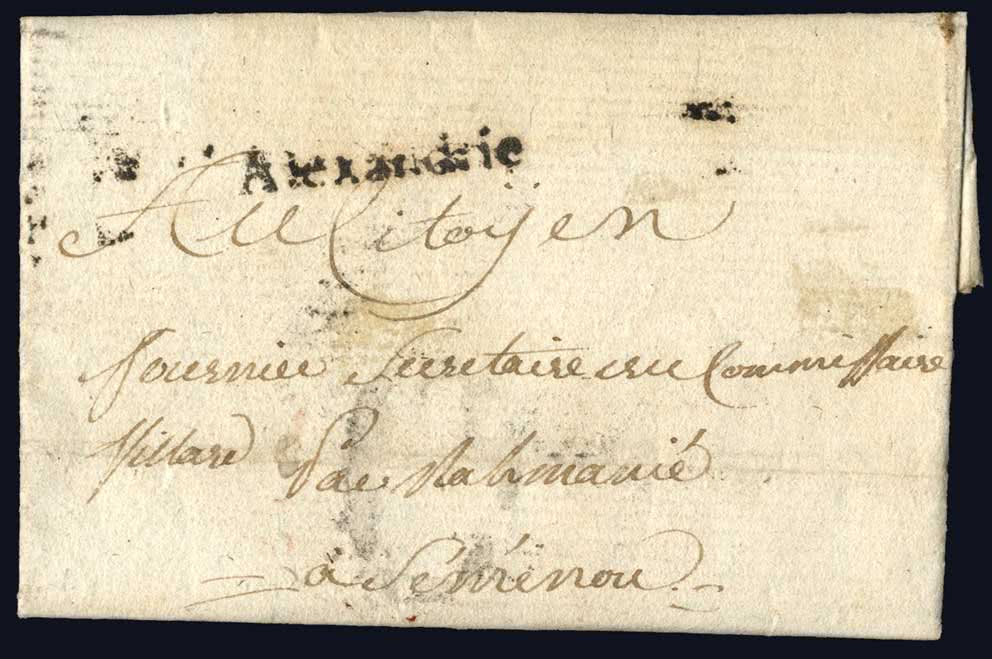 Alexandrie
Au Citoyen
fournier Secretaire du Commissaire
Villard Par Rahmanié
à Semenou